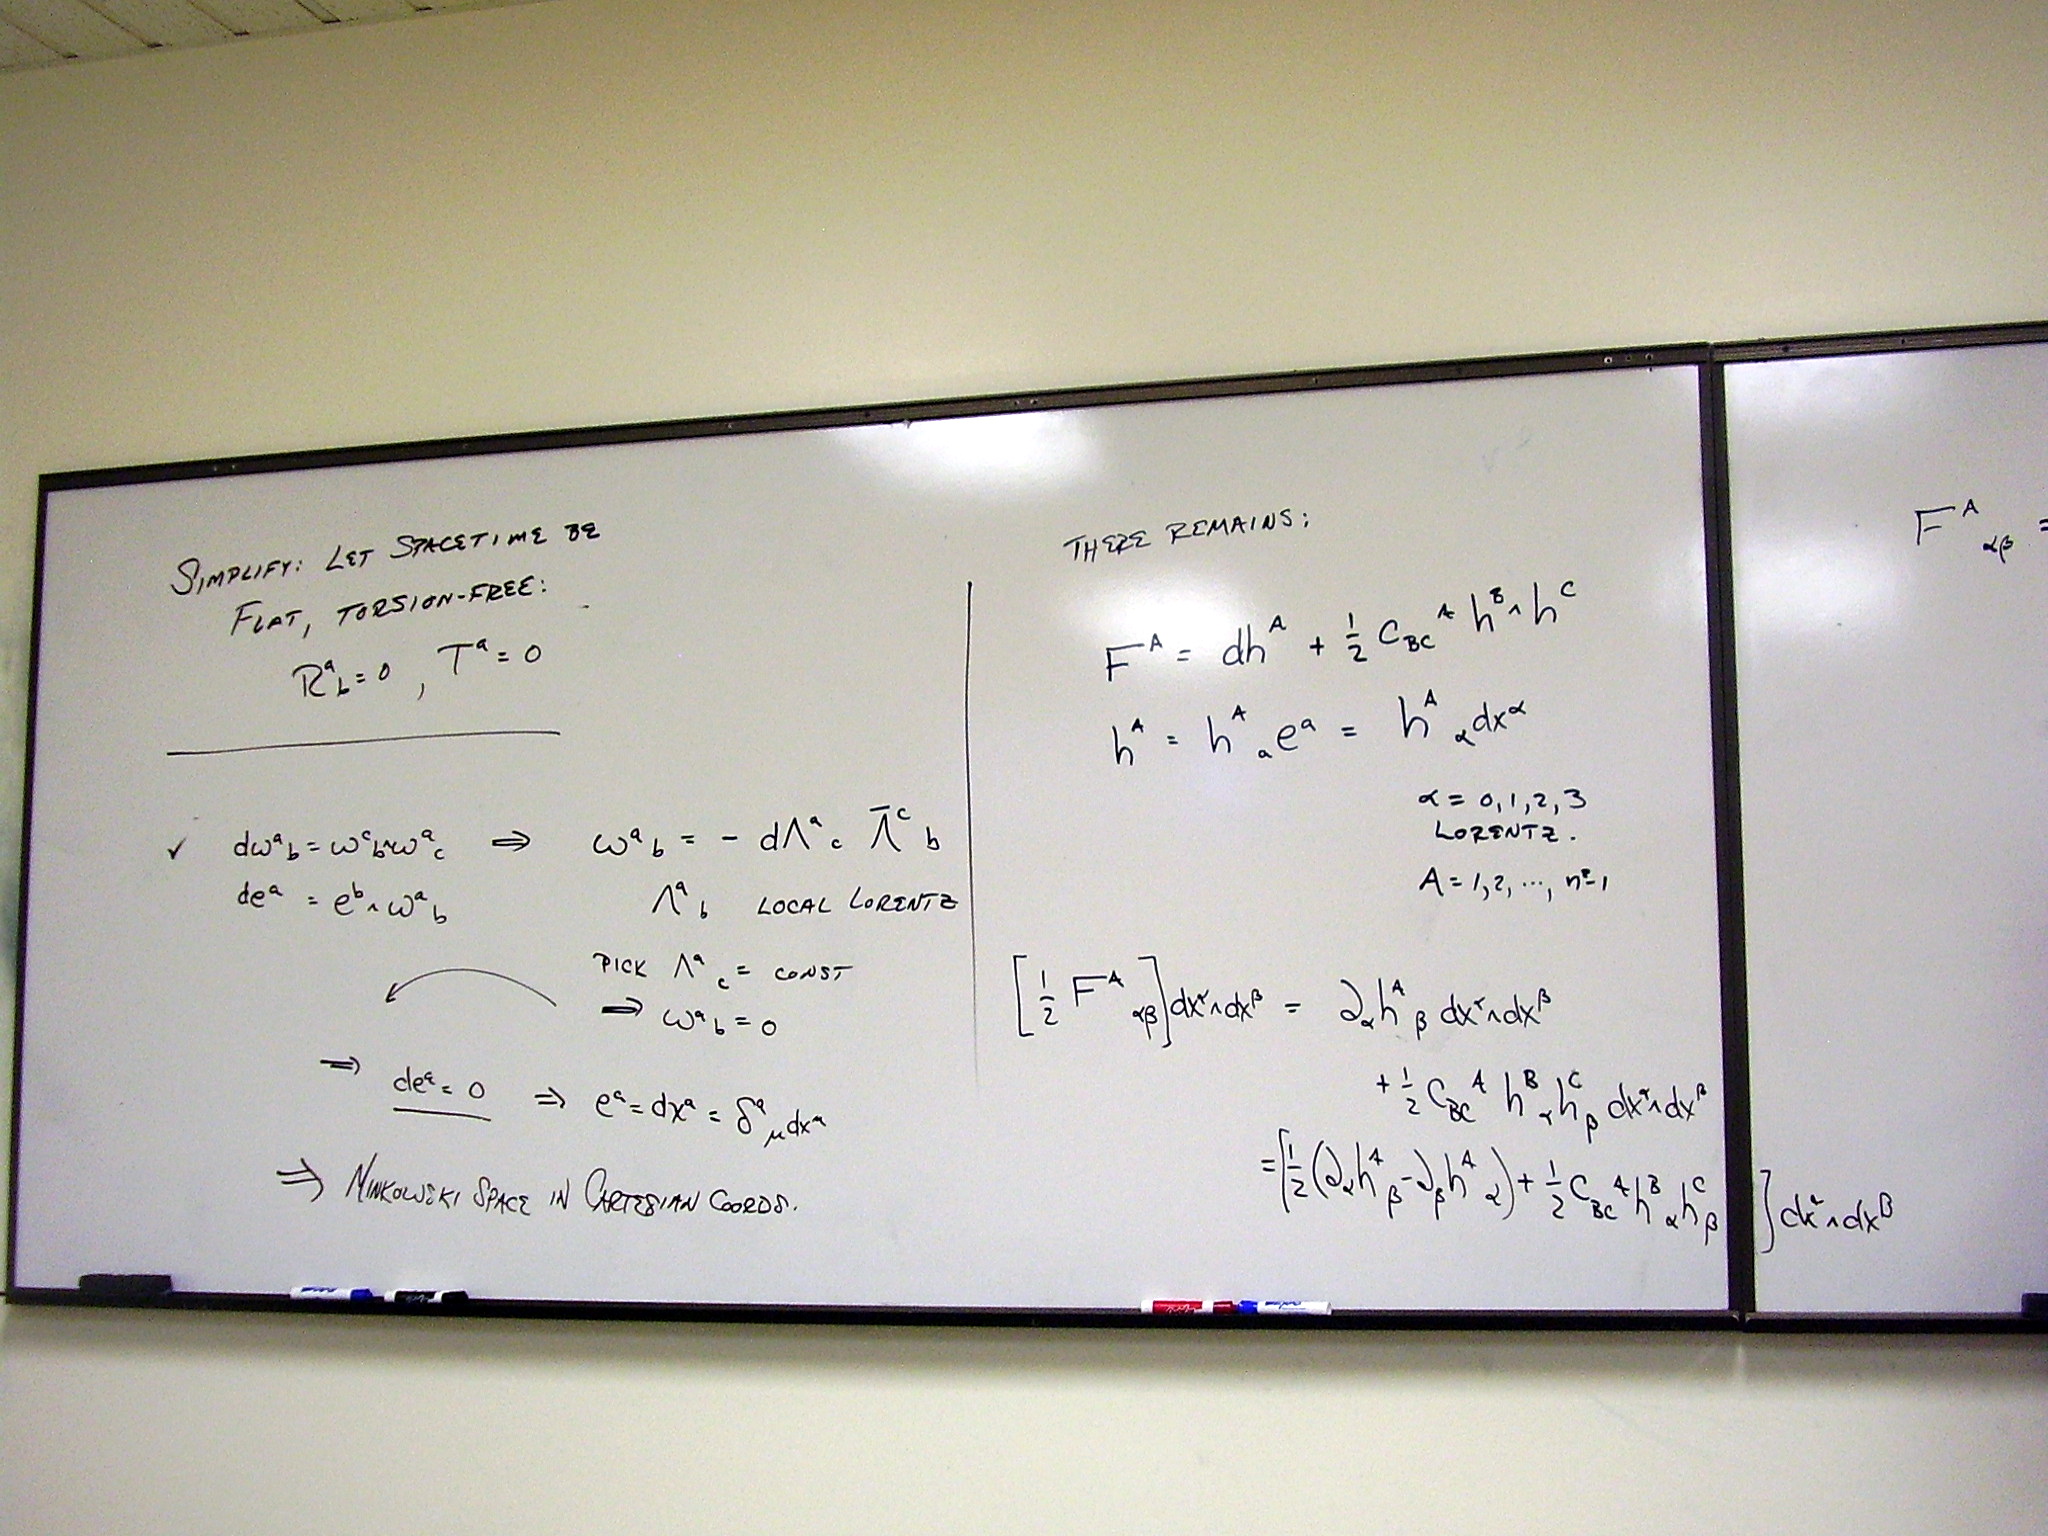 SIMPLIFY: LET SPACETIME BE
FLAT, TORSION-FREE:
R^a_b = 0 , T^a = 0
✓ dω^a_b = ω^c_b ∧ ω^a_c ⇒ ω^a_b = - dΛ^a_c Λ̄^c_b
de^a = e^b ∧ ω^a_b Λ^a_b LOCAL LORENTZ
PICK Λ^a_c = CONST
⇒ ω^a_b = 0
⇒ de^a = 0 ⇒ e^a = dx^a = δ^a_μ dx^μ
⇒ MINKOWSKI SPACE IN CARTESIAN COORDS.
THERE REMAINS:
F^A = dh^A + 1/2 C_BC^A h^B ∧ h^C
h^A = h^A_a e^a = h^A_α dx^α
α = 0, 1, 2, 3
LORENTZ.
A = 1, 2, ..., n²-1
[1/2 F^A_αβ] dx^α ∧ dx^β = ∂_α h^A_β dx^α ∧ dx^β
+ 1/2 C_BC^A h^B_α h^C_β dx^α ∧ dx^β
= [1/2 (∂_α h^A_β - ∂_β h^A_α) + 1/2 C_BC^A h^B_α h^C_β] dx^α ∧ dx^β
F^A_αβ =